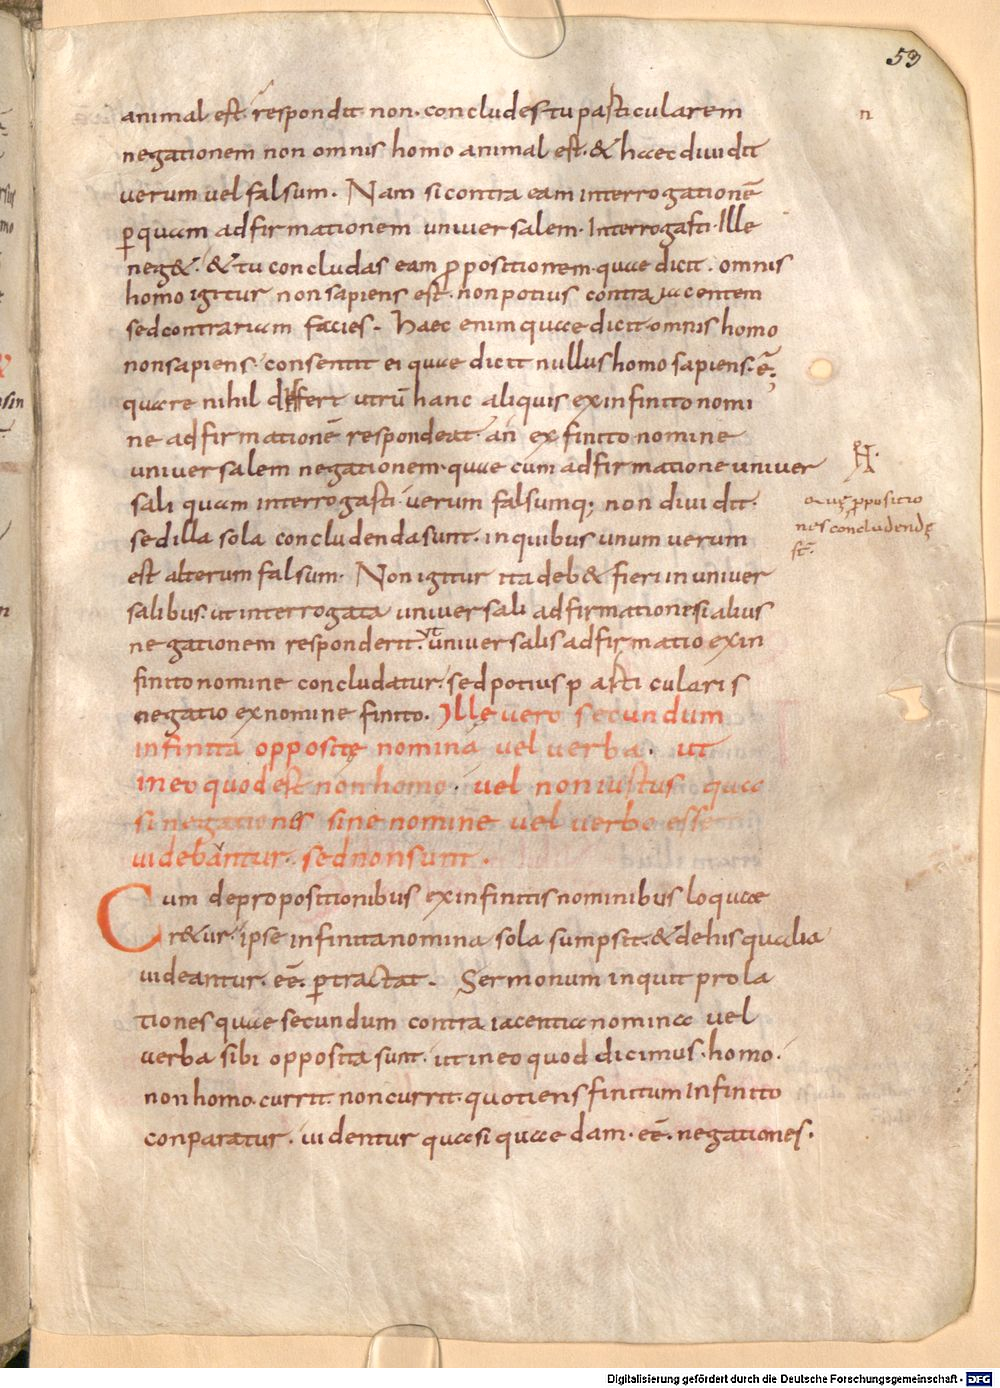 53
animal est. respondit non. concludes tu particularem
n
negationem non omnis homo animal est. & haec diuidit
uerum uel falsum. Nam si contra eam interrogationē
ꝑ quam adfirmationem uniuersalem. Interrogasti. Ille
neg&. & tu concludas eam ꝓpositionem. quae dicit. omnis
homo igitur non sapiens est. non potius contra iacentem
sed contrariam facies. Haec enim quae dicit. omnis homo
non sapiens. consentit ei quae dicit nullus homo sapiens. ē;
quare nihil differt utrū hanc aliquis ex infinito nomi
ne adfirmationē respondeat. an ex finito nomine
uniuersalem negationem. quae cum adfirmatione uniuer
sali quam interrogasti. uerum falsumq; non diuidit.
sed illa sola concludenda sunt. in quibus unum uerum
est alterum falsum. Non igitur ita deb& fieri in uniuer
quę ꝓpositio
nes concludendę
st̄.
salibus. ut interrogata uniuersali adfirmatione si alius
negationem responderit. ut uniuersalis adfirmatio ex in
finito nomine concludatur. sed potius particularis
negatio ex nomine finito. Illę uero secundum
infinita oppositę nomina uel uerba. ut
in eo quod est non homo. uel non iustus quae
si negationes sine nomine uel uerbo esse
uidebantur. sed non sunt.
Cum de propositionibus ex infinitis nominibus loquae
r&ur. ipse infinita nomina sola sumpsit. & de his qualia
uideantur. eē. ꝑtractat. Sermonum inquit prola
tiones quae secundum contra iacentia nomina uel
uerba sibi opposita sunt. ut in eo quod dicimus. homo.
non homo. currit. non currit. quotiens finitum infinito
conparatur. uidentur quasi quaedam. eē. negationes.
Digitalisierung gefördert durch die Deutsche Forschungsgemeinschaft - DFG